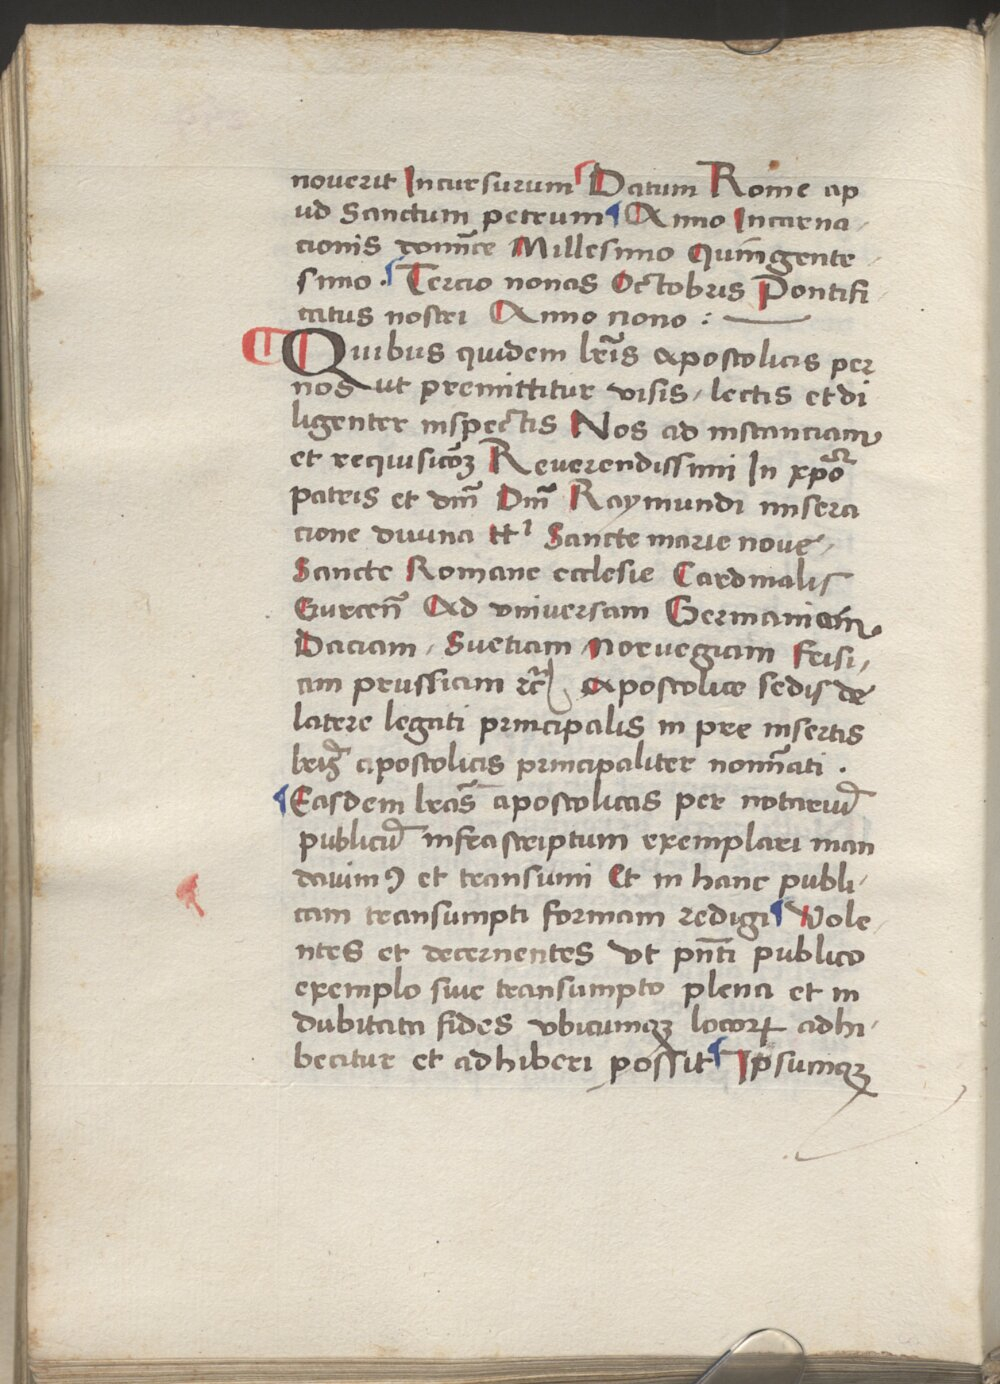 nouerit Incursurum Datum Rome ap
ud Sanctum petrum Anno Incarna
cionis domīce Millesimo Quīngente
simo. Tercio nonas Octobris Pontifi
catus nostri Anno nono :
Quibus quidem lr̄is apostolicis per
nos ut premittitur visis / lectis et di
ligenter inspectis Nos ad instanciam
et requisicōꝫ Reuerendissimi In xp̄o
patris et dn̄i Dn̄i Raymundi misera
cione diuina tt̄ Sancte marie noue /
Sancte Romane ecclesie Cardinalis
Gurcen̄ Ad vniuersam Germaniam
Daciam / Suetiam Noruegiam Frisi /
am prussiam ꝛc̄ Apostolice sedis de
latere legati principalis in pre insertis
lr̄is apostolicis principaliter nomīati .
Easdem lr̄as apostolicas per notariū
publicū infrascriptum exemplari man
dauimꝰ et transumi Et in hanc publi /
cam transumpti formam redigi Vole /
ntes et decernentes vt pn̄ti publico
exemplo siue transumpto plena et in
dubitata fides vbicumqꝫ locoꝝ adhi /
beatur et adhiberi possit Ipsumqꝫ